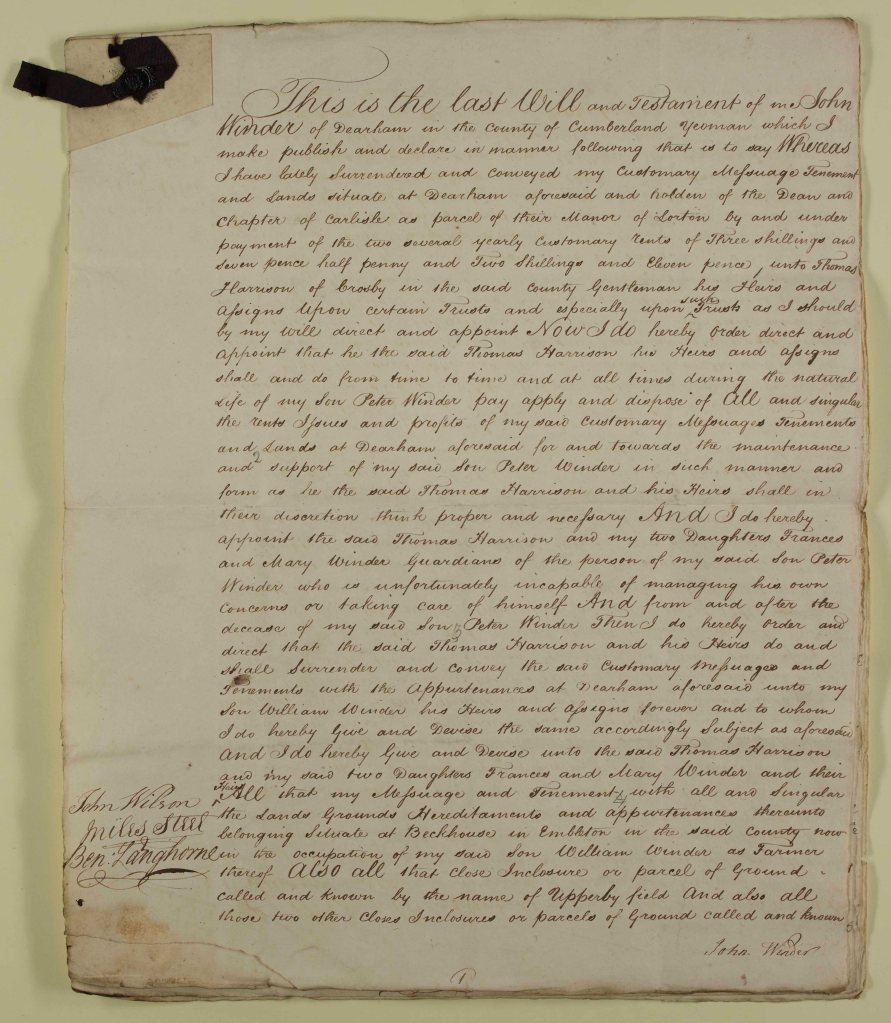 This is the last Will and Testament of me John
Winder of Dearham in the County of Cumberland Yeoman which I
make publish and declare in manner following that is to say Whereas
I have lately Surrendered and conveyed my Customary Messuage Tenement
and Lands situate at Dearham aforesaid and holden of the Dean and
Chapter of Carlisle as parcel of their Manor of Lorton by and under
payment of the two several yearly Customary rents of Three shillings and
seven pence half penny and Two Shillings and Eleven pence, unto Thomas
Harrison of Crosby in the said County Gentleman his Heirs and
Assigns Upon certain Trusts and especially upon such Trusts as I should
by my will direct and appoint Now I do hereby Order direct and
appoint that he the said Thomas Harrison his Heirs and assigns
shall and do from time to time and at all times during the natural
Life of my Son Peter Winder pay apply and dispose of All and singular
the rents Issues and profits of my said Customary Messuages Tenements
and Lands at Dearham aforesaid for and towards the maintenance
and 2 support of my said Son Peter Winder in such manner and
form as he the said Thomas Harrison and his Heirs shall in
their discretion think proper and necessary And I do hereby
appoint the said Thomas Harrison and my two Daughters Frances
and Mary Winder Guardians of the person of my said Son Peter
Winder who is unfortunately incapable of managing his own
Concerns or taking care of himself And from and after the
decease of my said Son 3 Peter Winder Then I do hereby order and
direct that the said Thomas Harrison and his Heirs do and
shall Surrender and convey the said Customary Messuages and
Tenements with the Appurtenances at Dearham aforesaid unto my
Son William Winder his Heirs and assigns forever and to whom
I do hereby Give and Devise the same accordingly Subject as aforesaid
And I do hereby Give and Devise unto the said Thomas Harrison
and my said two Daughters Frances and Mary Winder and their
Heirs All that my Messuage and Tenement 4 with all and Singular
the Lands Grounds Hereditaments and appurtenances thereunto
belonging Situate at Beckhouse in Embleton in the said County now
in the occupation of my said Son William Winder as Farmer
thereof Also all that Close Inclosure or parcel of Ground
called and known by the name of Upperby field And also all
those two other Closes Inclosures or parcels of Ground called and known
John Winder
John Wilson
Miles Steel
Ben: Langhorne
1